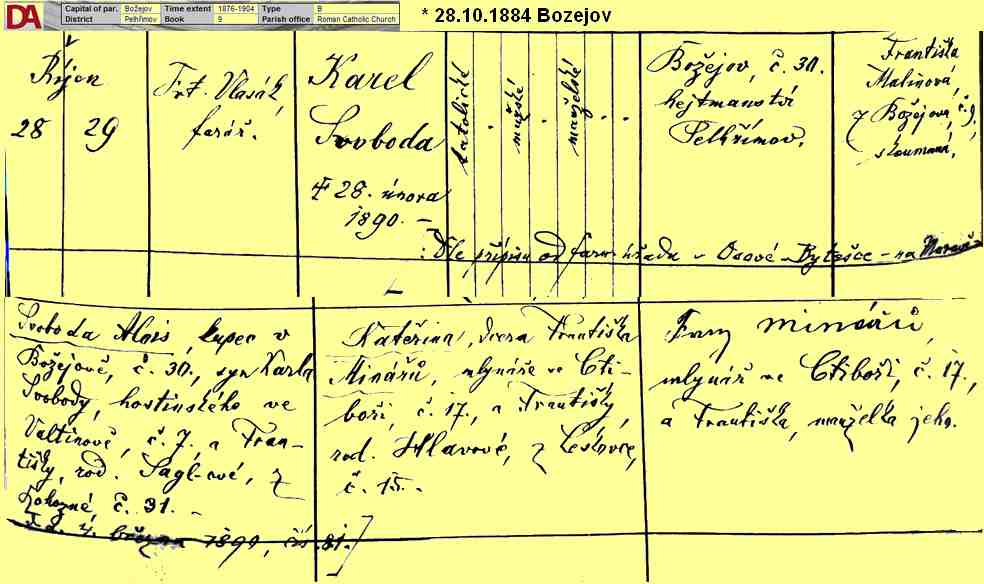 DA
Capital of par. Božejov Time extent 1876-1904 Type B
District Pelhřimov Book 9 Parish office Roman Catholic Church
* 28.10.1884 Bozejov
Říjen
28 29
Frt. Vlasák,
farář.
Karel
Svoboda
† 28. února
1890. –
katolické
mužské
manželské
Božejov, č. 30.
hejtmanství
Pelhřimov,
Františka
Malinová,
z Božejova, č. 9,
zkoumaná,
Dle přípisu od farního úřadu v Osové-Bytešce – na Moravě
Svoboda Alois, kupec v
Božejově, č. 30., syn Karla
Svobody, hostinského ve
Valtínově, č. 7. a Fran-
tišky, rod. z
č. 31. –
4. března 1890, čís. 81.
Kateřina, dcera Františka
Minářů, mlynáře ve Cti-
boři, č. 17., a Františky,
rod. Hlavové, z Leskovce,
č. 15. –
Franz Minářů,
mlynář ve Ctiboři, č. 17.,
a Františka, manželka jeho.